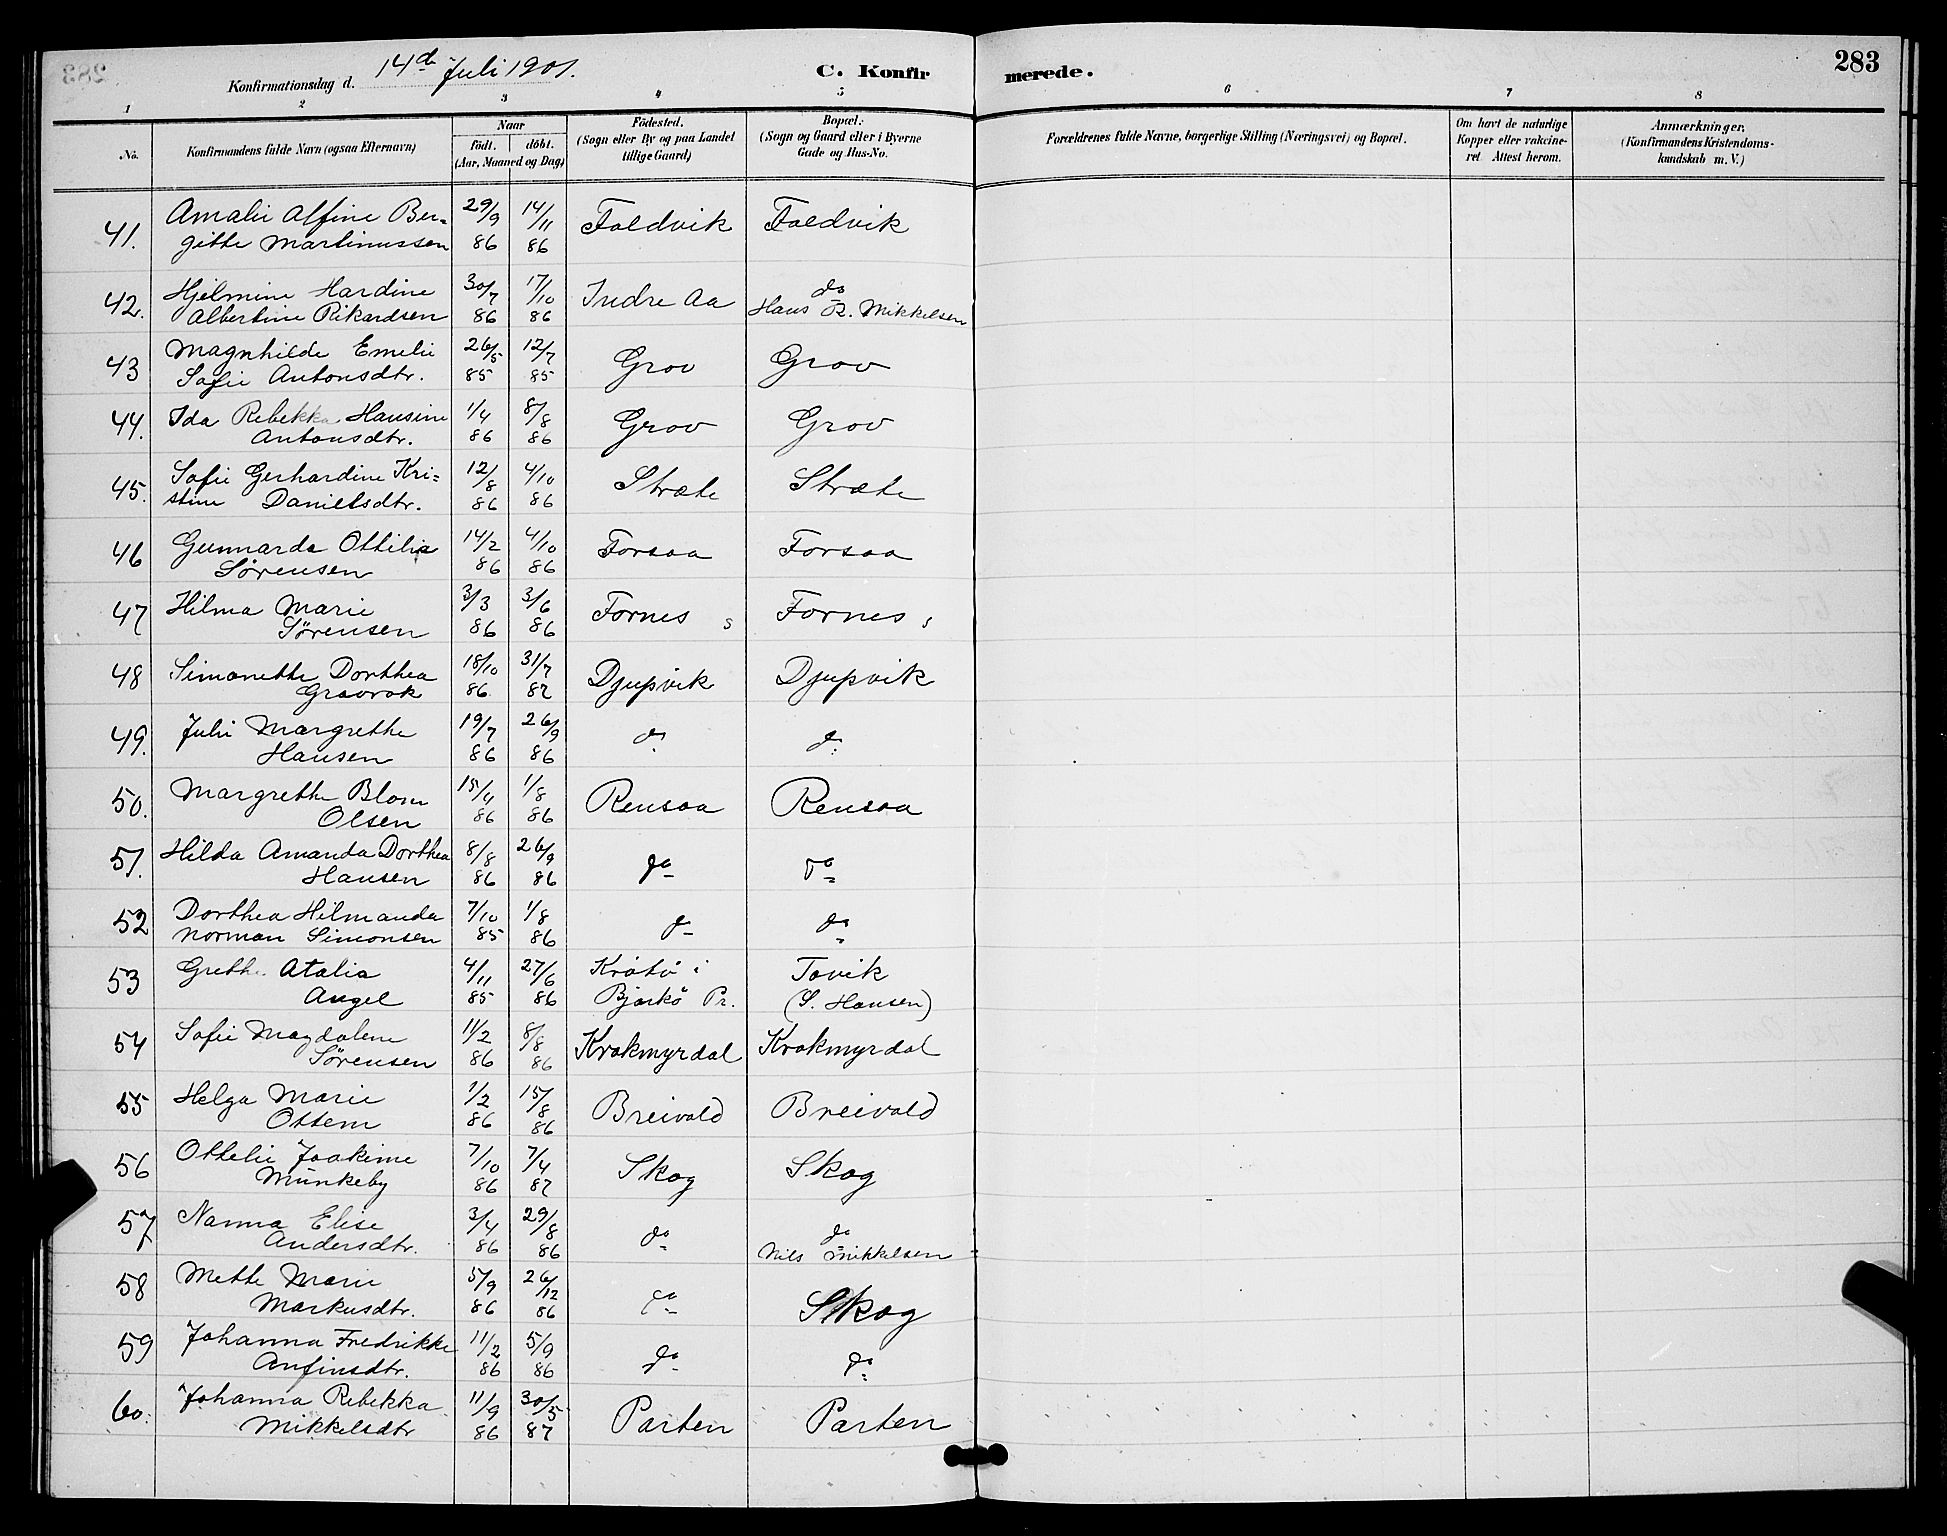 283
Konfirmationsdag d. 14de Juli 1901.
C. Konfirmerede.
1 2 3 4 5 6 7 8
No.
Konfirmandens fulde Navn (ogsaa Efternavn)
Naar
födt. döbt.
(Aar, Maaned og Dag)
Födested.
(Sogn eller By og paa Landet
tillige Gaard)
Bopæl.
(Sogn og Gaard eller i Byerne
Gade og Hus-No.
Forældrenes fulde Navne, borgerlige Stilling (Næringsvei) og Bopæl.
Om havt de naturlige
Kopper eller vakcine-
ret. Attest herom.
Anmærkninger.
(Konfirmandens Kristendoms-
kundskab m. V.)
41. Amalie Alfine Ber- 29/9 14/11 Foldvik Foldvik
gitte Martinussen 86 86
42. Hjelmine Hardine 30/7 17/10 Indre Aa do
Albertine Rikardsen 86 86 Hans R. Mikkelsen
43 Magnhilde Emelie 26/5 12/7 Grov Grov
Sofie Antonsdtr. 85 85
44. Ida Rebekka Hansine 1/4 8/8 Grov Grov
Antonsdtr. 86 86
45. Sofie Gerhardine Kri- 12/8 4/10 Stræte Stræte
stine Danielsdtr. 86 86
46 Gunnarda Ottilia 14/2 4/10 Forsaa Forsaa
Sørensen 86 86
47 Hilma Marie 3/3 3/6 Fornes s Fornes s
Sørensen 86 86
48 Simonette Dorthea 18/10 31/7 Djupvik Djupvik
Graavok 86. 87
49. Juli Margrethe 19/7 26/9 do do
Hansen 86 86
50. Margrethe Blom 15/4 1/8 Rensaa Rensaa
Olsen 86 86
51. Hilda Amanda Dorthea 8/8 26/9 do do
Hansen 86 86
52 Dorthea Hilmanda 7/10 1/8 do do
Norman Simonsen 85 86
53 Grethe Atalia 4/11 27/6 Kråtö i Tovik
Angel 85 86 Bjarkö Pr. (S. Hansen)
54 Sofie Magdalene 11/2 8/8 Krokmyrdal Krokmyrdal
Sørensen 86 86
55 Helga Marie 1/2 15/8 Breivold Breivold
Ottem 86 86
56 Ottelie Joakime 7/10 7/4 Skog Skog
Munkeby 86 87
57 Nanna Elise 3/4 29/8 do do
Andersdtr. 86 86 Nils Mikkelsen
58 Mette Marie 5/9 26/12 do Skog
Markusdtr. 86 86
59 Johanna Fredrikke 11/2 5/9 do do
Anfinsdtr. 86 86
60. Johanna Rebekka 11/9 30/5 Parten Parten
Mikkelsdtr 86 87